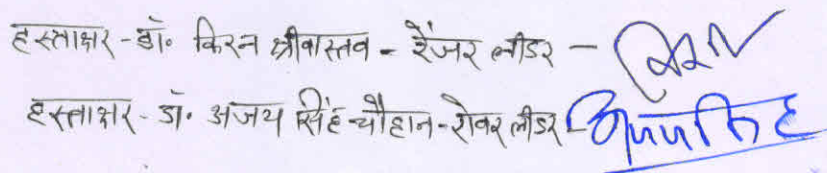 हस्ताक्षर - डॉ. किरन श्रीवास्तव - रेंजर लीडर -
हस्ताक्षर - डॉ. अजय सिंह चौहान - रोवर लीडर - अजय सिंह